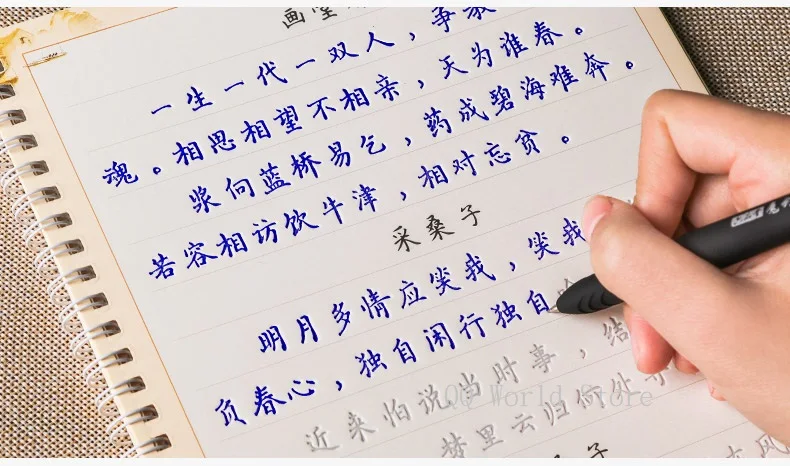 画堂
一生一代一双人，争教
魂。相思相望不相亲，天为谁春。
浆向蓝桥易乞，药成碧海难奔。
若容相访饮牛津，相对忘贫。
采桑子
明月多情应笑我，笑我
负春心，独自闲行独自
近来怕说当时事，结
梦里云归何处寻
子
QQ World Store